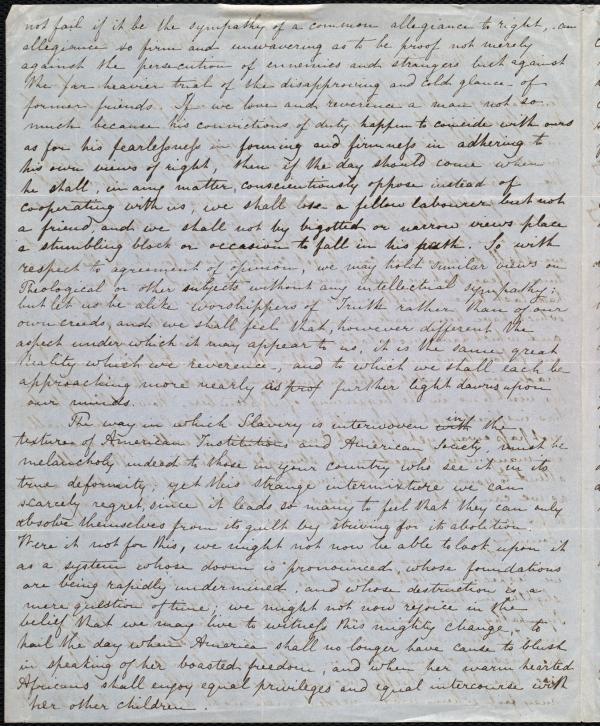 not fail if it be the sympathy of a common allegiance to right, an
allegiance so firm and unwavering as to be proof not merely
against the persecution of ennemies and strangers but against
the far heavier trial of the disapproving and cold glance of
former friends. If we love and reverence a man not so
much because his convictions of duty happen to coincide with ours
as for his fearlessness in forming and firmness in adhering to
his own views of right, then if the day should come when
he shall, in any matter, conscientiously oppose instead of
cooperating with us, we shall lose a fellow labourer but not
a friend, and we shall not by bigotted or narrow views place
a stumbling block or occasion to fall in his path. So with
respect to agreement of opinion, we may hold similar views on
Theological or other subjects without any intellectual sympathy;
but let us be alike worshippers of Truth rather than of our
own creeds, and we shall feel that, however different the
aspect under which it may appear to us, it is the same great
Reality which we reverence, and to which we shall each be
approaching more nearly as prof further light dawns upon
our minds.
The way in which Slavery is interwoven with in the
texture of American Institutions and American Society, must be
melancholy indeed to those in your country who see it in its
true deformity: yet this strange intermixture we can
scarcely regret, since it leads so many to feel that they can only
absolve themselves from its guilt by striving for its abolition.
Were it not for this, we might not now be able to look upon it
as a system whose doom is pronounced, whose foundations
are being rapidly undermined, and whose destruction is a
mere question of time; we might not now rejoice in the
belief that we may live to witness this mighty change, to
hail the day when America shall no longer have cause to blush
in speaking of her boasted freedom, and when her warm hearted
Africans shall enjoy equal privileges and equal intercourse with
her other children.